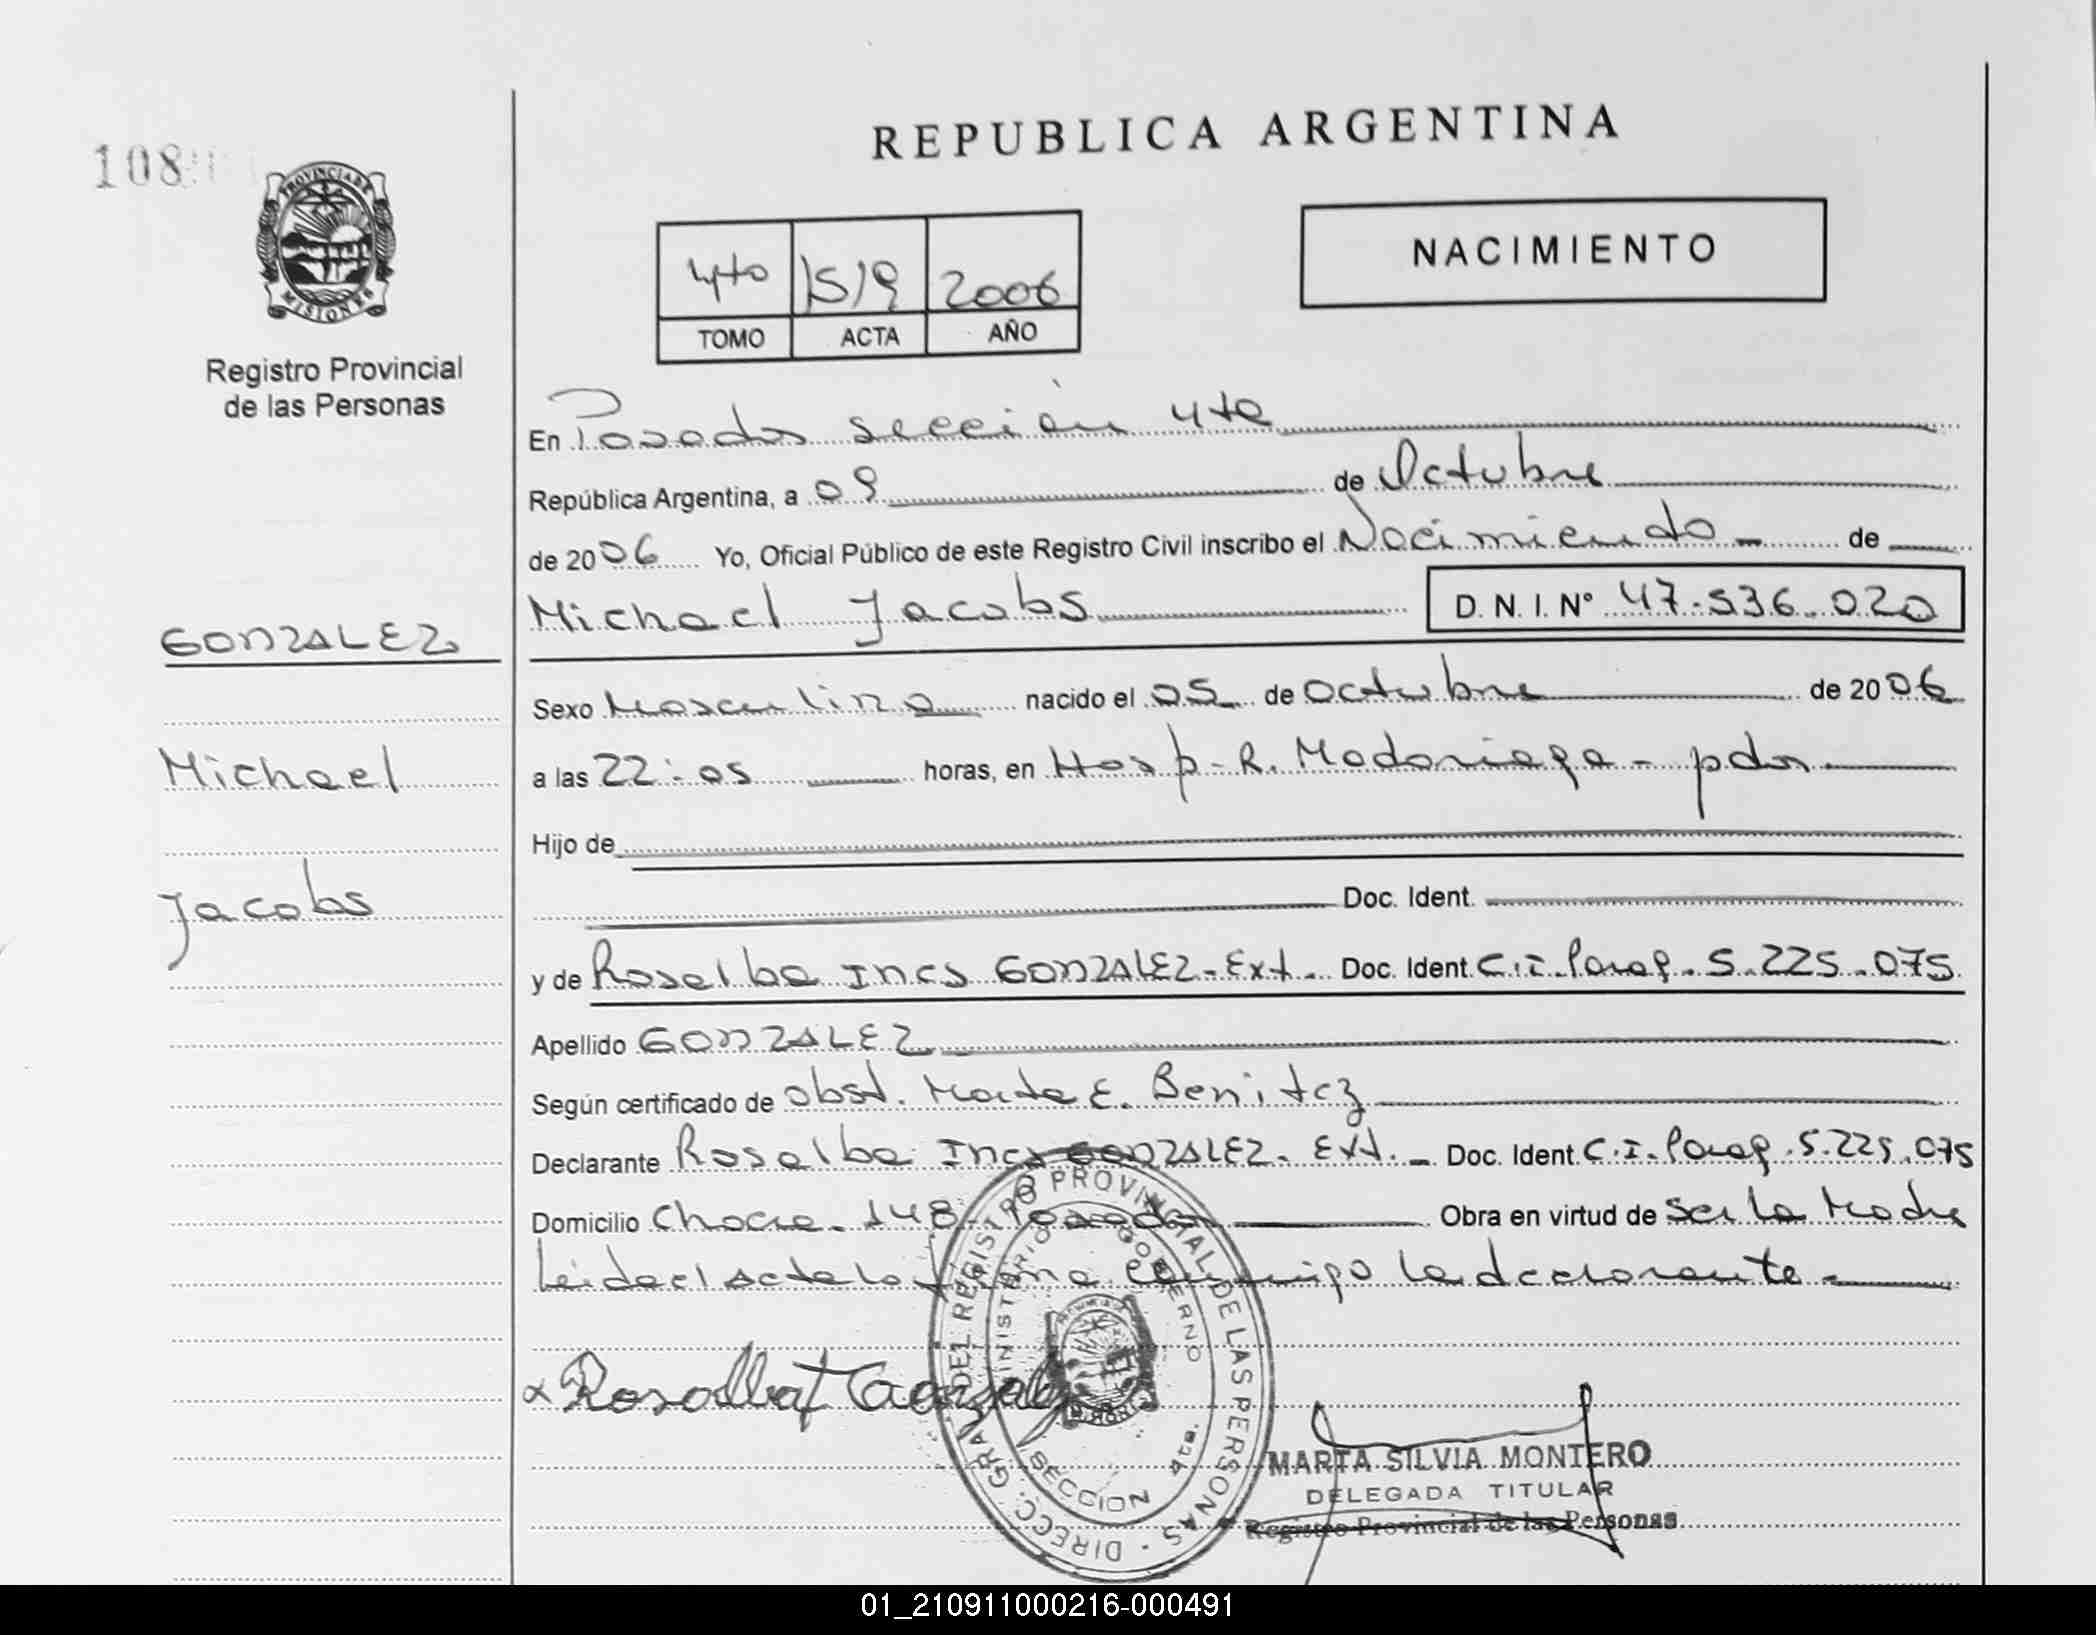 REPUBLICA ARGENTINA
108
PROVINCIA DE
MISIONES
Registro Provincial
de las Personas
NACIMIENTO
4to 1519 2006
TOMO ACTA AÑO
En Posadas sección 4ta
República Argentina, a 09 de Octubre
de 2006 Yo, Oficial Público de este Registro Civil inscribo el Nacimiento de
Michael Jacobs D. N. I. Nº 47.536.020
GONZALEZ
Michael
Jacobs
Sexo Masculino nacido el 05 de octubre de 2006
a las 22:05 horas, en Hosp. R. Madariaga - pdas
Hijo de
Doc. Ident.
y de Roselba Ines GONZALEZ - Ext. Doc. Ident. C.I. Parag. 5.225.075
Apellido GONZALEZ
Según certificado de obst. Marta E. Benitez
Declarante Roselba Ines GONZALEZ. Ext. Doc. Ident. C.I. Parag. 5.225.075
Domicilio 148 - Posadas Obra en virtud de ser la Madre
Leida el Acta la firma conmigo la declarante
DIRECC. GRAL. DEL REGISTRO PROVINCIAL DE LAS PERSONAS
MINISTERIO GOBIERNO
SECCION 4ta.
MARTA SILVIA MONTERO
DELEGADA TITULAR
Registro Provincial de las Personas
01_210911000216-000491